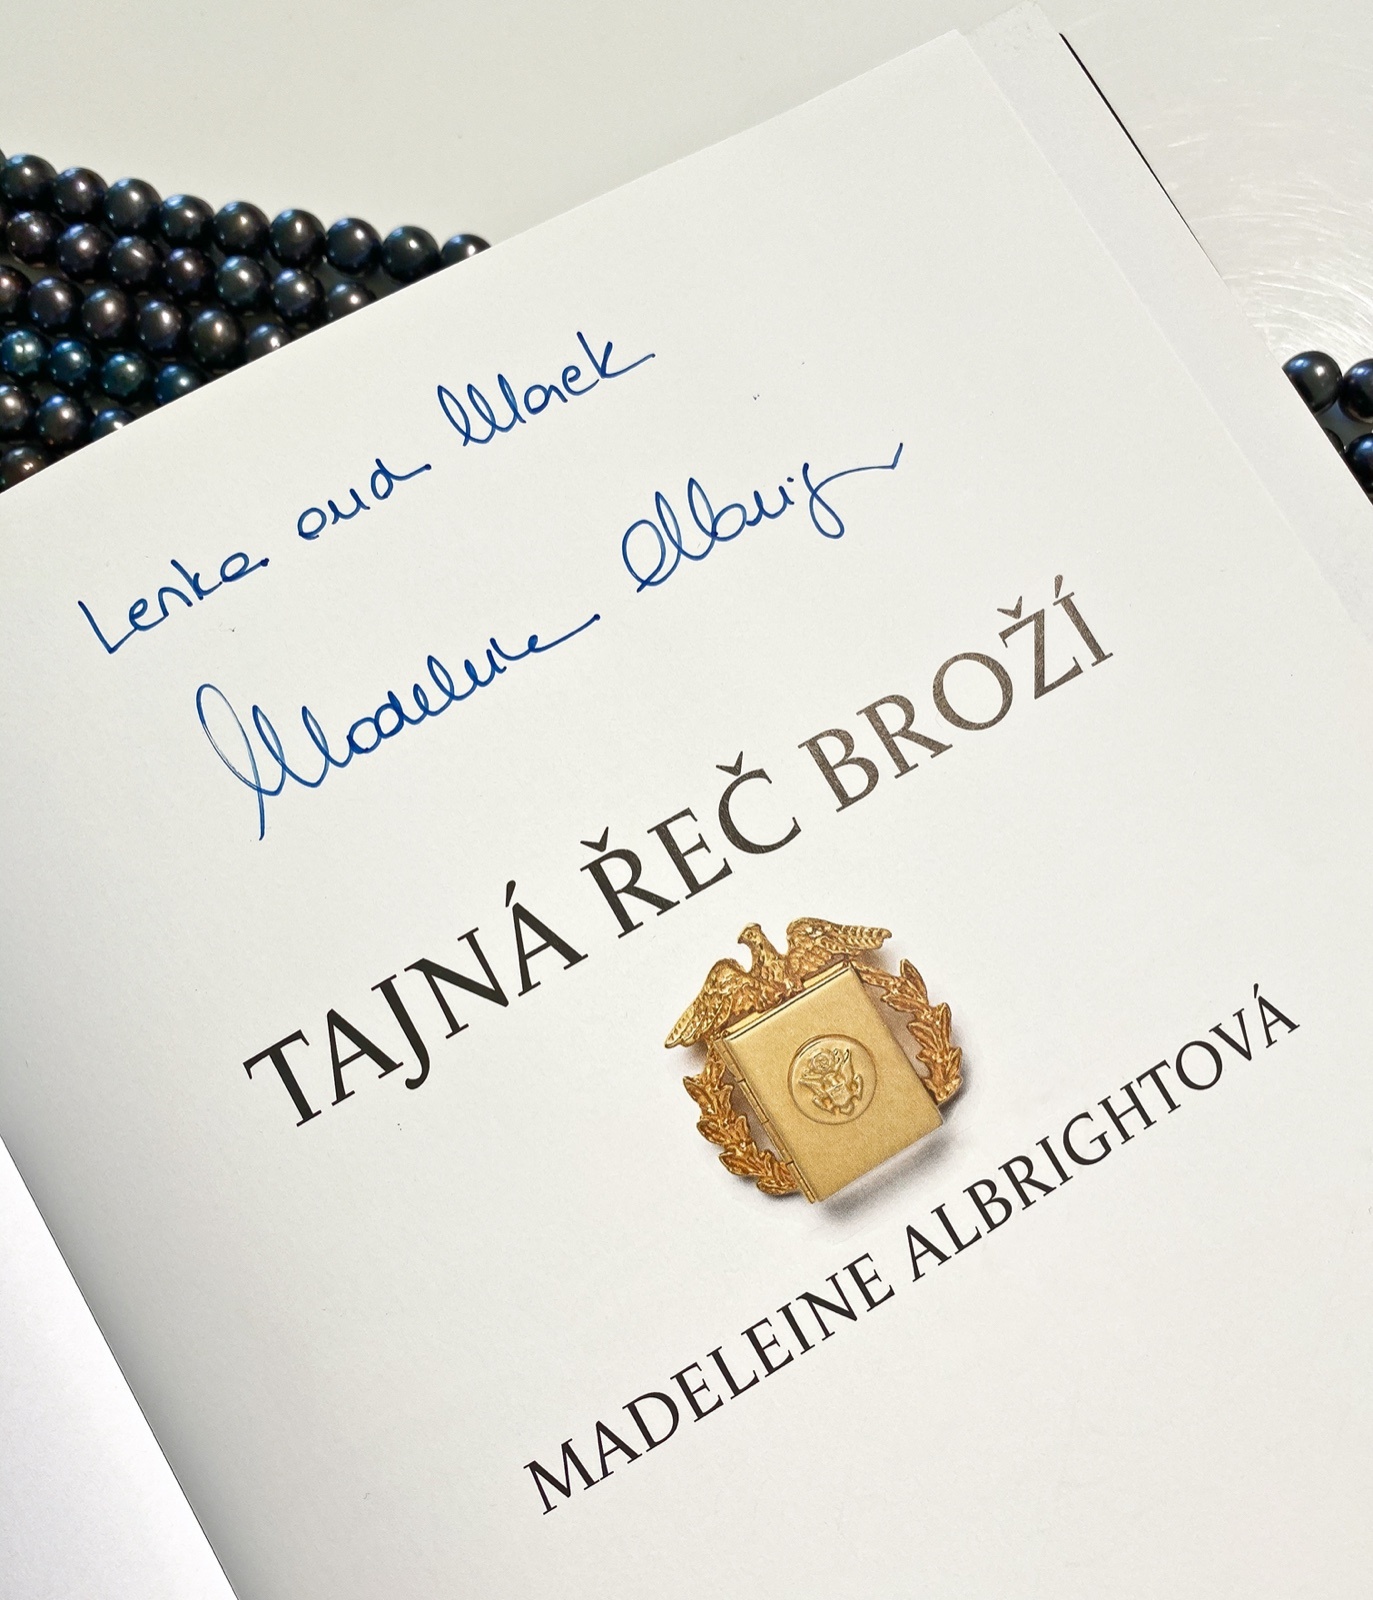 Lenka and Marek
Madeleine Albright
TAJNÁ ŘEČ BROŽÍ
MADELEINE ALBRIGHTOVÁ